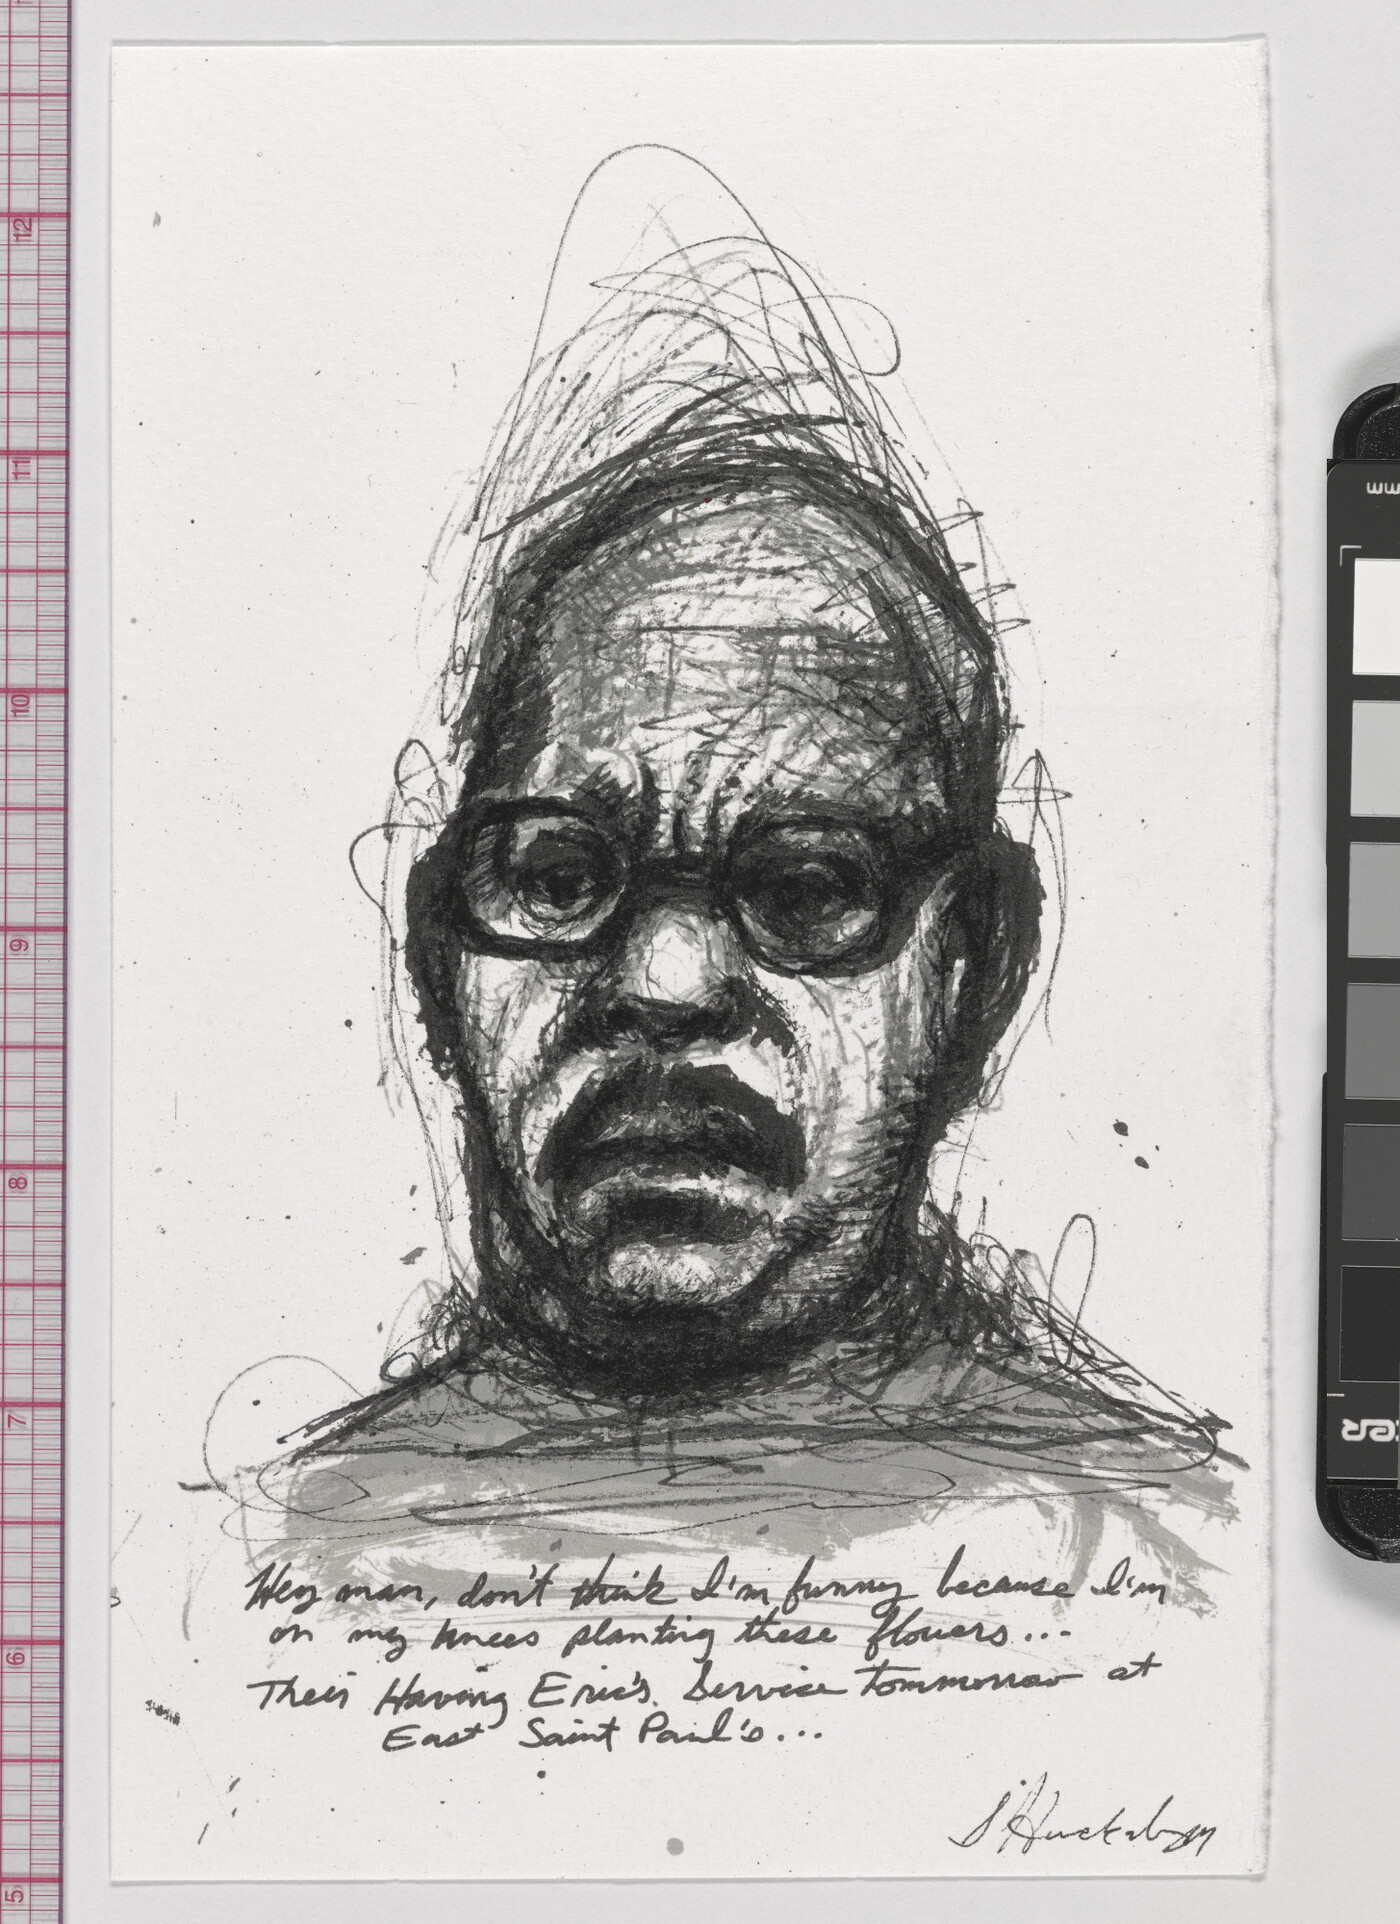 Hey man, don't think I'm funny because I'm
on my knees planting these flowers...
Their Having Eric's. Service tommorrow at
East Saint Paul's...
S Huckaby
12
11
10
9
8
7
6
5